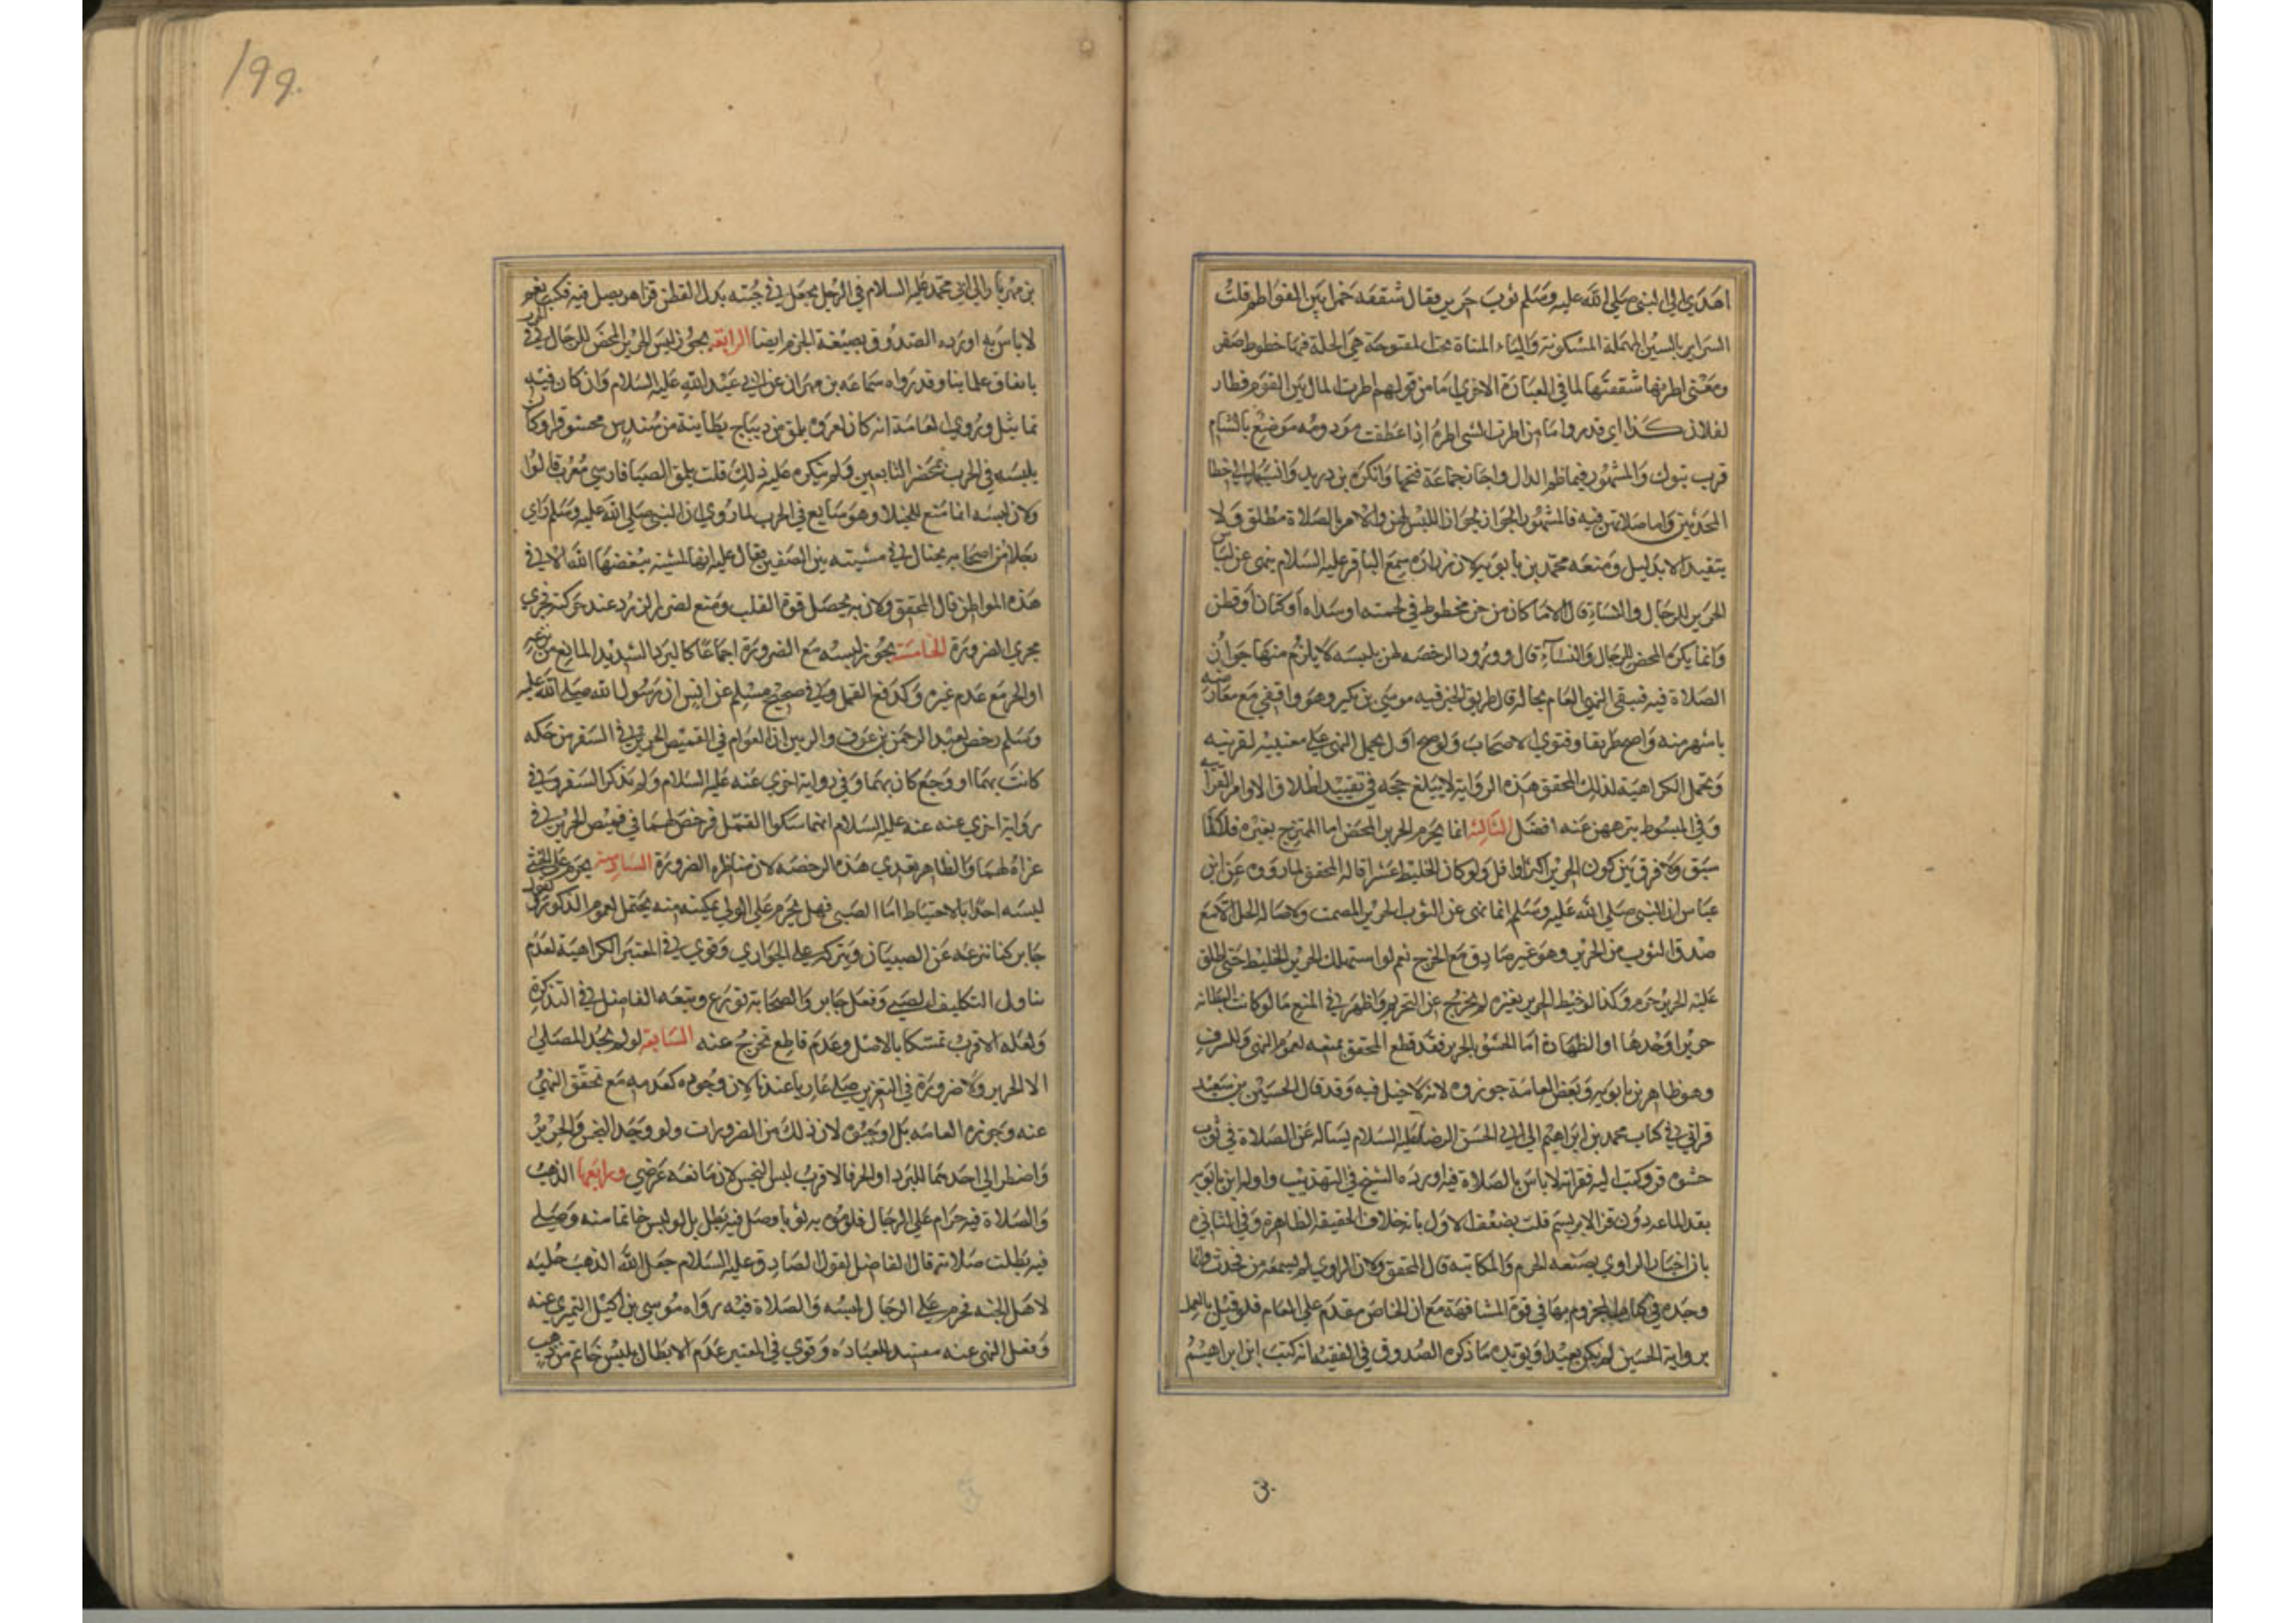 اهدي الي النبي صلي الله عليه وسلم ثوب حرير فقال شققه خمرا بين الفواطم قلت
السيرا بالسين المهملة المكسورة والياء المثناة تحت المفتوحة هي الحلة فيها خطوط صفر
ومعني اطرتها شققتها لما في العبارة الاخري اما من قولهم اطرت المال بين القوم فطار
لفلان كذا اي قدر واما من اطرت الشي اطره اذا عطفت ودومه موضع بالشام
قرب تبوك والمشهور فيها ضم الدال واجاز جماعة فتحها وانكره بن دريد
المحدثين واما صلاتهن فيه فالمشهور الجواز لجواز اللبس لهن والامر بالصلاة مطلق ولا
يتقيد الا بدليل ومنعه محمد بن بابويه لان زرارة سمع الباقر عليه السلام ينهي عن لباس
الحرير للرجال والنساء قال الا ما كان من خز مخطوط في لحمته او سداه او كتان او قطن
وانما يكره المحض للرجال والنساء قال وورود الرخصه لهن بلبسه لا يلزم منها جواز
الصلاة فيه فيبقي النهي العام بحاله قال طريق الخبر فيه موسي بن بكير وهو واقفي مع معارضته
باشهر منه واصح طريقا وفتوي الاصحاب ولو صح اول بحمل النهي علي معنييه لقرنيه
وتحمل الكراهية لذلك المحقق هذه الرواية لا يبلغ حجه في تقييد اطلاق الاوامر القرآنيه
وفي المبسوط تنزههن عنه افضل الثالثة انما يحرم الحرير المحض اما الممتزج بغيره فلا كما
سبق ولا فرق بين كون الحرير اكثر او اقل ولو كان الخليط عشرا قاله المحقق لما رووه عن ابن
عباس ان النبي صلي الله عليه وسلم انما نهي عن الثوب الحرير المصمت ولاصالة الحل الا مع
صدق الثوب من الحرير وهو غير صادق مع المزج نعم لو استهلك الحرير الخليط حتي اطلق
عليه الحرير حرم وكذا لو خيط الحرير بغيره لم يخرج عن التحريم واظهر في المنع ما لو كانت البطانه
حريرا وحدها او الظهارة اما الحشو بالحرير فقد قطع المحقق بمنعه لعموم النهي وللسرف
وهو ظاهر بن بابويه وبعض العامة جوزوه لانه لا خيلا فيه وقد قال الحسين بن سعيد
قراني في كتاب محمد بن ابراهيم الي ابي الحسن الرضا عليه السلام يساله عن الصلاة في ثوب
حشوه قز وكتب اليه فقراته لا باس بالصلاة فيه اورده الشيخ في التهذيب واوله ابن بابويه
بقز الماعز دون قز الابريسم قلت يضعف الاول بانه خلاف الحقيقة الظاهرة وفي الثاني
بان اخبار الراوي بصيغه الجزم والمكاتبه قال المحقق ولان الراوي لم يسمعه من محدث وانما
وجده في كتاب المجزوم بها في قوة المشافهة مع ان الخاص مقدم علي العام فلو قيل بالعمل
برواية الحسين لم يكن بعيدا ويؤيده ما ذكره الصدوق في الفقيه انه كتب ابن ابراهيم
بن مهزيار الي ابي محمد عليه السلام في الرجل يجعل في جبته بدل القطن قزا هل يصلي فيه فكتب نعم
لا باس به اورده الصدوق بصيغة الجزم ايضا الرابعة يجوز لبس الحرير المحض للرجال في الحرب
باتفاق علمائنا وقد رواه سماعه بن مهران عن ابي عبد الله عليه السلام وان كان فيه
تماثيل وروي العامة انه كان لعروه يلمق من ديباج بطاينه من سندس محشو قزا وكان
يلبسه في الحرب بمحضر التابعين ولم ينكره عليه ذلك قلت يلمق القبا فارسي معرب قالوا
ولان لبسه انما منع للخيلا وهو سايغ في الحرب لما روي ان النبي صلي الله عليه وسلم راي
رجلا من اصحابه يختال في مشيته بين الصفين فقال عليه انها لمشيه يبغضها الله الا في
هذه المواطن قال المحقق ولان به يحصل قوة القلب ومنع لضرر الزرد عند حركته فجري
مجري الضرورة الخامسة يجوز لبسه مع الضرورة اجماعا كالبرد الشديد المانع من نزعه
او الحر مع عدم غيره وكدفع القمل وفي صحيح مسلم عن انس ان رسول الله صلي الله عليه
وسلم رخص لعبد الرحمن بن عوف والزبير ابن العوام في القميص الحرير في السفر من حكه
كانت بهما او وجع كان بهما وفي رواية اخري عنه عليه السلام ولم يذكر السفر وفي
رواية اخري عنه عنه عليه السلام انهما شكوا القمل فرخص لهما في قميص الحرير في
غزاة لهما والظاهر تعدي هذه الرخصه لان مناطه الضرورة السادسة يحرم علي الخنثي
لبسه اخذا بالاحتياط اما الصبي فهل يحرم علي الولي تمكينه منه يحتمل لعموم الذكور ولقول
جابر كنا ننزعه عن الصبيان ونتركه علي الجواري وقوي في المعتبر الكراهية لعدم
تناول التكليف الصبي وفعل جابر والصحابة تورع وتبعه الفاضل في التذكرة
ولعله الاقرب تمسكا بالاصل وعدم قاطع يخرج عنه السابعة لو لم يجد المصلي
الا الحرير ولا ضرورة في التعري صلي عاريا عندنا لان وجوده كعدمه مع تحقق النهي
عنه وجوزه العامه بل اوجبوه لان ذلك من الضرورات ولو وجد النجس والحرير
واضطر الي احدهما للبرد او الحر فالاقرب لبس النجس لان مانعه عرضي ورابعها الذهب
والصلاة فيه حرام علي الرجال فلو موه به ثوبا وصلي فيه بطل بل لو لبس خاتما منه وصلي
فيه بطلت صلاته قال الفاضل لقول الصادق عليه السلام جعل الله الذهب حلية
لاهل الجنه فحرم علي الرجال لبسه والصلاة فيه رواه موسي بن اكيل النميري عنه
وفعل النهي عنه مفسد للعبادة وقوي في المعتبر عدم الابطال بلبس خاتم من ذهب
199